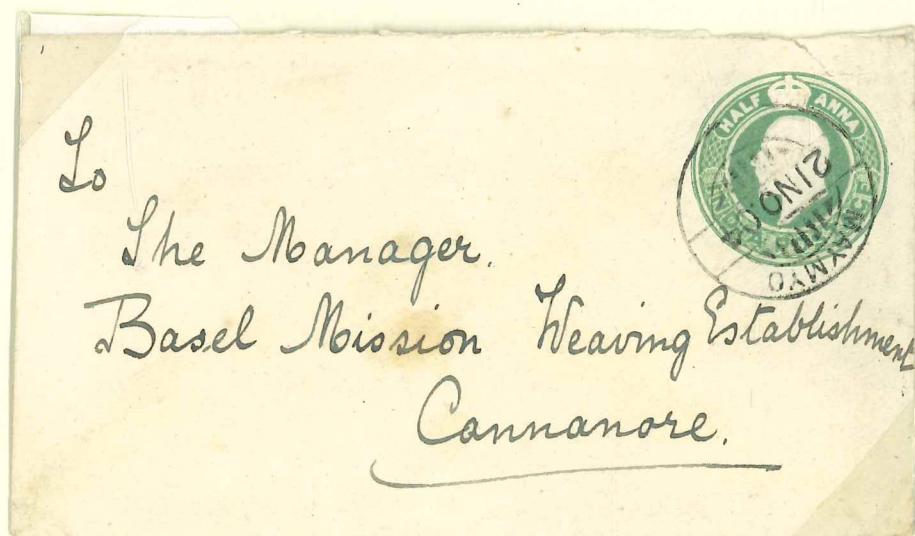 To
The Manager.
Basel Mission Weaving Establishment
Cannanore.
HALF ANNA
INDIA POSTAGE
MAYMYO
21 NO